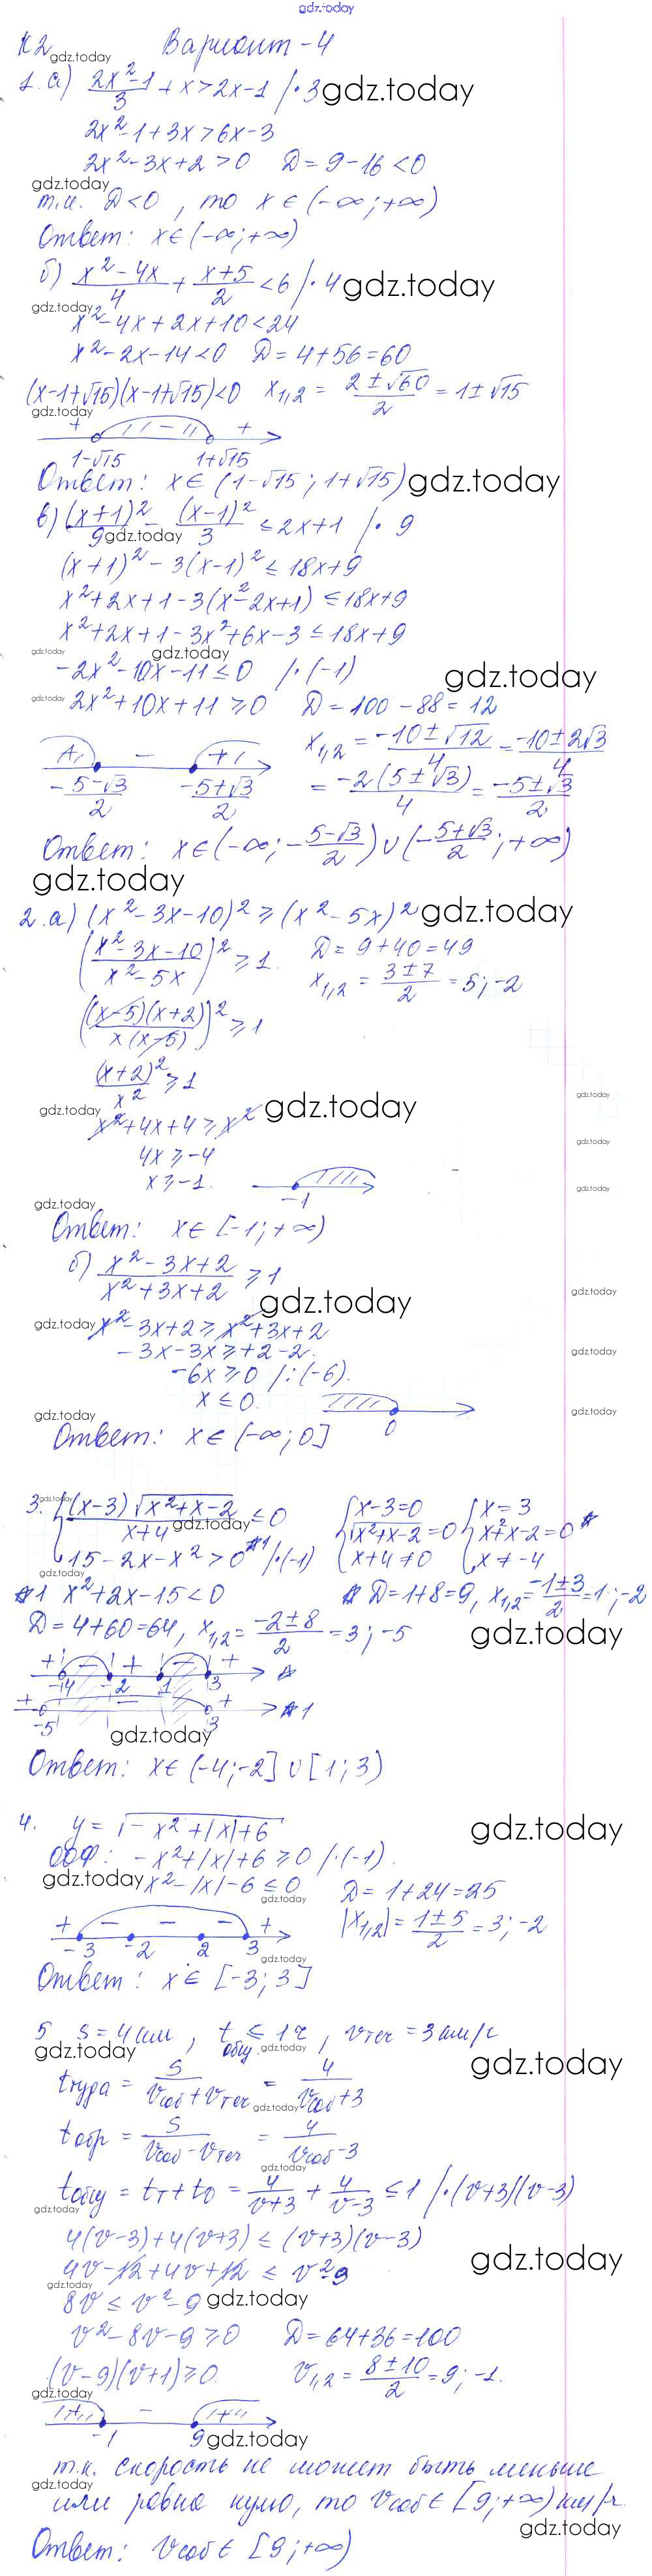 gdz.today
К2 Вариант-4
gdz.today
1. а) (2x²-1)/3 + x > 2x-1 /·3 gdz.today
2x²-1+3x>6x-3
2x²-3x+2>0 Д=9-16<0
gdz.today
т.к. Д<0, то x∈(-∞;+∞)
Ответ: x∈(-∞;+∞)
б) (x²-4x)/4 + (x+5)/2 <6 /·4 gdz.today
gdz.today
x²-4x+2x+10<24
x²-2x-14<0 Д=4+56=60
(x-1+√15)(x-1+√15)<0 x₁,₂ = (2±√60)/2 = 1±√15
gdz.today
+ - +
1-√15 1+√15
Ответ: x∈(1-√15; 1+√15) gdz.today
в) (x+1)²/9 - (x-1)²/3 ≤2x+1 /·9
gdz.today
(x+1)²-3(x-1)²≤18x+9
x²+2x+1-3(x²-2x+1)≤18x+9
x²+2x+1-3x²+6x-3≤18x+9
gdz.today gdz.today
-2x²-10x-11≤0 /·(-1) gdz.today
gdz.today 2x²+10x+11≥0 Д=100-88=12
x₁,₂ = (-10±√12)/4 = (-10±2√3)/4
- +
-(5-√3)/2 (-5+√3)/2 = -2(5±√3)/4 = (-5±√3)/2
Ответ: x∈(-∞; -(5-√3)/2)∪(-(5+√3)/2; +∞)
gdz.today
2. а) (x²-3x-10)²≥(x²-5x)² gdz.today
((x²-3x-10)/(x²-5x))² ≥1. Д=9+40=49
x₁,₂ = (3±7)/2 = 5; -2
((x-5)(x+2)/(x(x-5)))² ≥1
(x+2)²/x² ≥1
gdz.today
gdz.today x²+4x+4≥x² gdz.today
gdz.today
4x≥-4
x≥-1.
gdz.today
-1
gdz.today
Ответ: x∈[-1;+∞)
б) (x²-3x+2)/(x²+3x+2) ≥1
gdz.today
gdz.today
gdz.today x²-3x+2≥x²+3x+2
-3x-3x≥+2-2.
gdz.today
-6x≥0 /:(-6).
x≤0.
gdz.today gdz.today
0
Ответ: x∈(-∞;0]
3. gdz.today { (x-3)√(x²+x-2)/(x+4) ≤0 { x-3=0 { x=3
gdz.today √(x²+x-2)=0 x²+x-2=0 *
15-2x-x²>0 *1 /·(-1) x+4≠0 x≠-4
gdz.today
*1 x²+2x-15<0 * Д=1+8=9, x₁,₂=(-1±3)/2=1;-2
Д=4+60=64, x₁,₂=(-2±8)/2=3;-5 gdz.today
+ - + - + *
-4 -2 1 3
+ - + *1
-5 3
gdz.today
Ответ: x∈(-4;-2]∪[1;3)
4. y=√(-x²+|x|+6) gdz.today
ООФ: -x²+|x|+6≥0 /·(-1).
gdz.today x²-|x|-6≤0 Д=1+24=25
gdz.today
+ - - - + |x₁,₂|=(1±5)/2=3;-2
-3 -2 2 3
gdz.today
Ответ: x∈[-3;3]
5 S=4км, tобщ.≤1ч, vтеч=3км/ч
gdz.today gdz.today gdz.today
tтуда = S/(vсоб+vтеч) = 4/(vсоб+3)
gdz.today
tобр = S/(vсоб-vтеч) = 4/(vсоб-3)
gdz.today
tобщ = tт+tо = 4/(v+3) + 4/(v-3) ≤1 /·(v+3)(v-3)
gdz.today
4(v-3)+4(v+3)≤(v+3)(v-3)
4v-12+4v+12≤v²-9 gdz.today
gdz.today
8v≤v²-9 gdz.today
v²-8v-9≥0 Д=64+36=100
(v-9)(v+1)≥0. v₁,₂=(8±10)/2=9;-1.
gdz.today
+ - +
-1 9 gdz.today
т.к. скорость не может быть меньше
gdz.today
или равна нулю, то vсоб∈[9;+∞)км/ч.
gdz.today
Ответ: vсоб∈[9;+∞)